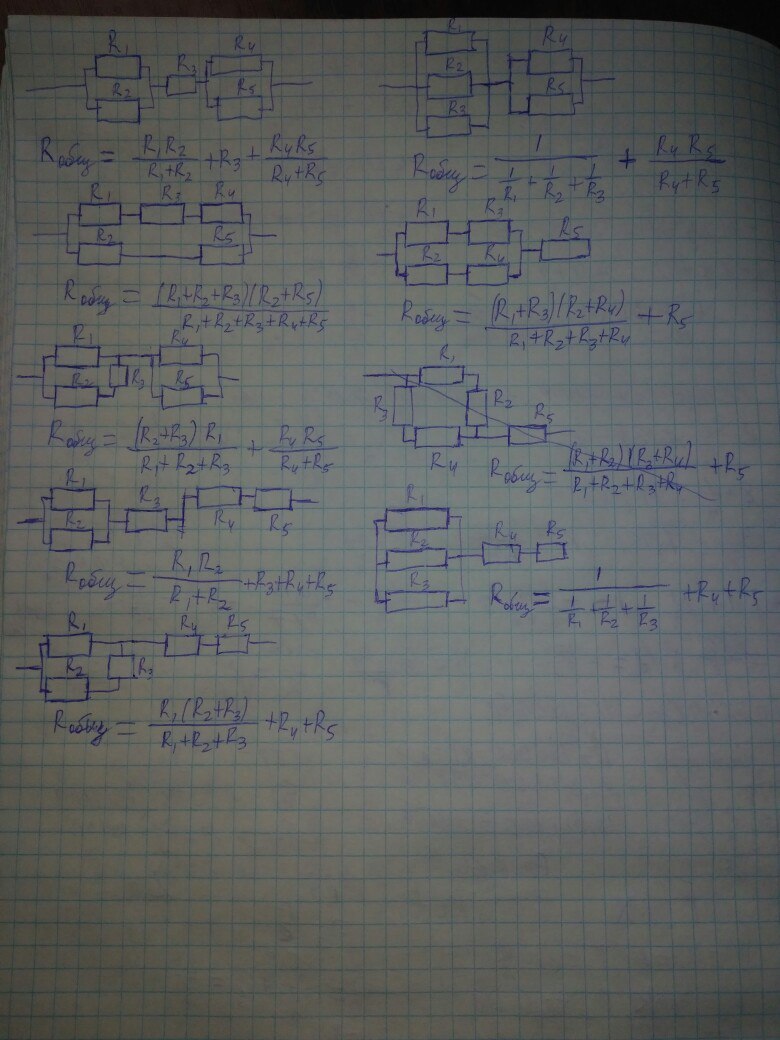 R₁ R₃ R₄
R₂ R₅
Rобщ = R₁R₂ / R₁+R₂ + R₃ + R₄R₅ / R₄+R₅
R₁ R₃ R₄
R₂ R₅
Rобщ = (R₁+R₂+R₃)(R₂+R₅) / R₁+R₂+R₃+R₄+R₅
R₁ R₄
R₂ R₃ R₅
Rобщ = (R₂+R₃)R₁ / R₁+R₂+R₃ + R₄R₅ / R₄+R₅
R₁ R₃
R₂ R₄ R₅
Rобщ = R₁R₂ / R₁+R₂ + R₃+R₄+R₅
R₁ R₄ R₅
R₂ R₃
Rобщ = R₁(R₂+R₃) / R₁+R₂+R₃ + R₄+R₅
R₁ R₄
R₂ R₅
R₃
Rобщ = 1 / 1/R₁ + 1/R₂ + 1/R₃ + R₄R₅ / R₄+R₅
R₁ R₃ R₅
R₂ R₄
Rобщ = (R₁+R₃)(R₂+R₄) / R₁+R₂+R₃+R₄ + R₅
R₁
R₃ R₂ R₅
R₄
Rобщ = (R₁+R₂)(R₃+R₄) / R₁+R₂+R₃+R₄ + R₅
R₁
R₂ R₄ R₅
R₃
Rобщ = 1 / 1/R₁ + 1/R₂ + 1/R₃ + R₄+R₅